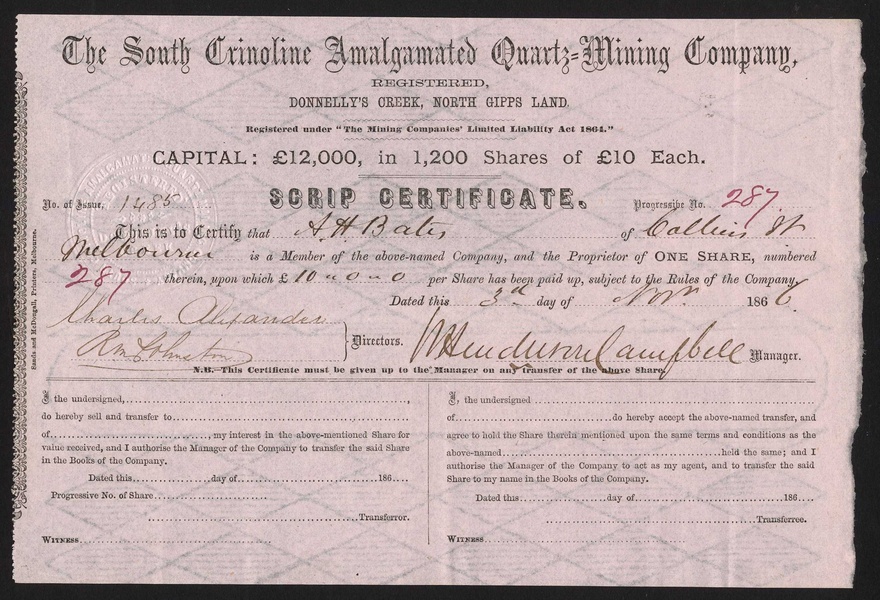 The South Crinoline Amalgamated Quartz=Mining Company,
REGISTERED,
DONNELLY'S CREEK, NORTH GIPPS LAND.
Registered under "The Mining Companies' Limited Liability Act 1864."
CAPITAL: £12,000, in 1,200 Shares of £10 Each.
SCRIP CERTIFICATE.
No. of Issue, 1485 Progressive No. 287
This is to Certify that A. H. Bates of Collins St
Melbourne is a Member of the above-named Company, and the Proprietor of ONE SHARE, numbered
287 therein, upon which £ 10 " 0 " 0 per Share has been paid up, subject to the Rules of the Company.
Dated this 3rd day of Novr. 1866
Charles Alexander
Rm Johnston Directors. W Henderson Campbell Manager.
N.B.—This Certificate must be given up to the Manager on any transfer of the above Share.
Sands and McDougall, Printers, Melbourne.
I the undersigned,
do hereby sell and transfer to
of , my interest in the above-mentioned Share for
value received, and I authorise the Manager of the Company to transfer the said Share
in the Books of the Company.
Dated this day of 186
Progressive No. of Share
Transferror.
WITNESS
I, the undersigned
of do hereby accept the above-named transfer, and
agree to hold the Share therein mentioned upon the same terms and conditions as the
above-named held the same; and I
authorise the Manager of the Company to act as my agent, and to transfer the said
Share to my name in the Books of the Company.
Dated this day of 186
Transferree.
WITNESS